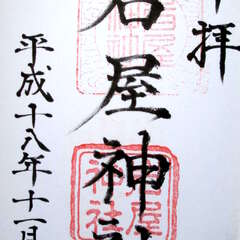 拝
石屋神
平成十八年十一月
石屋
神社